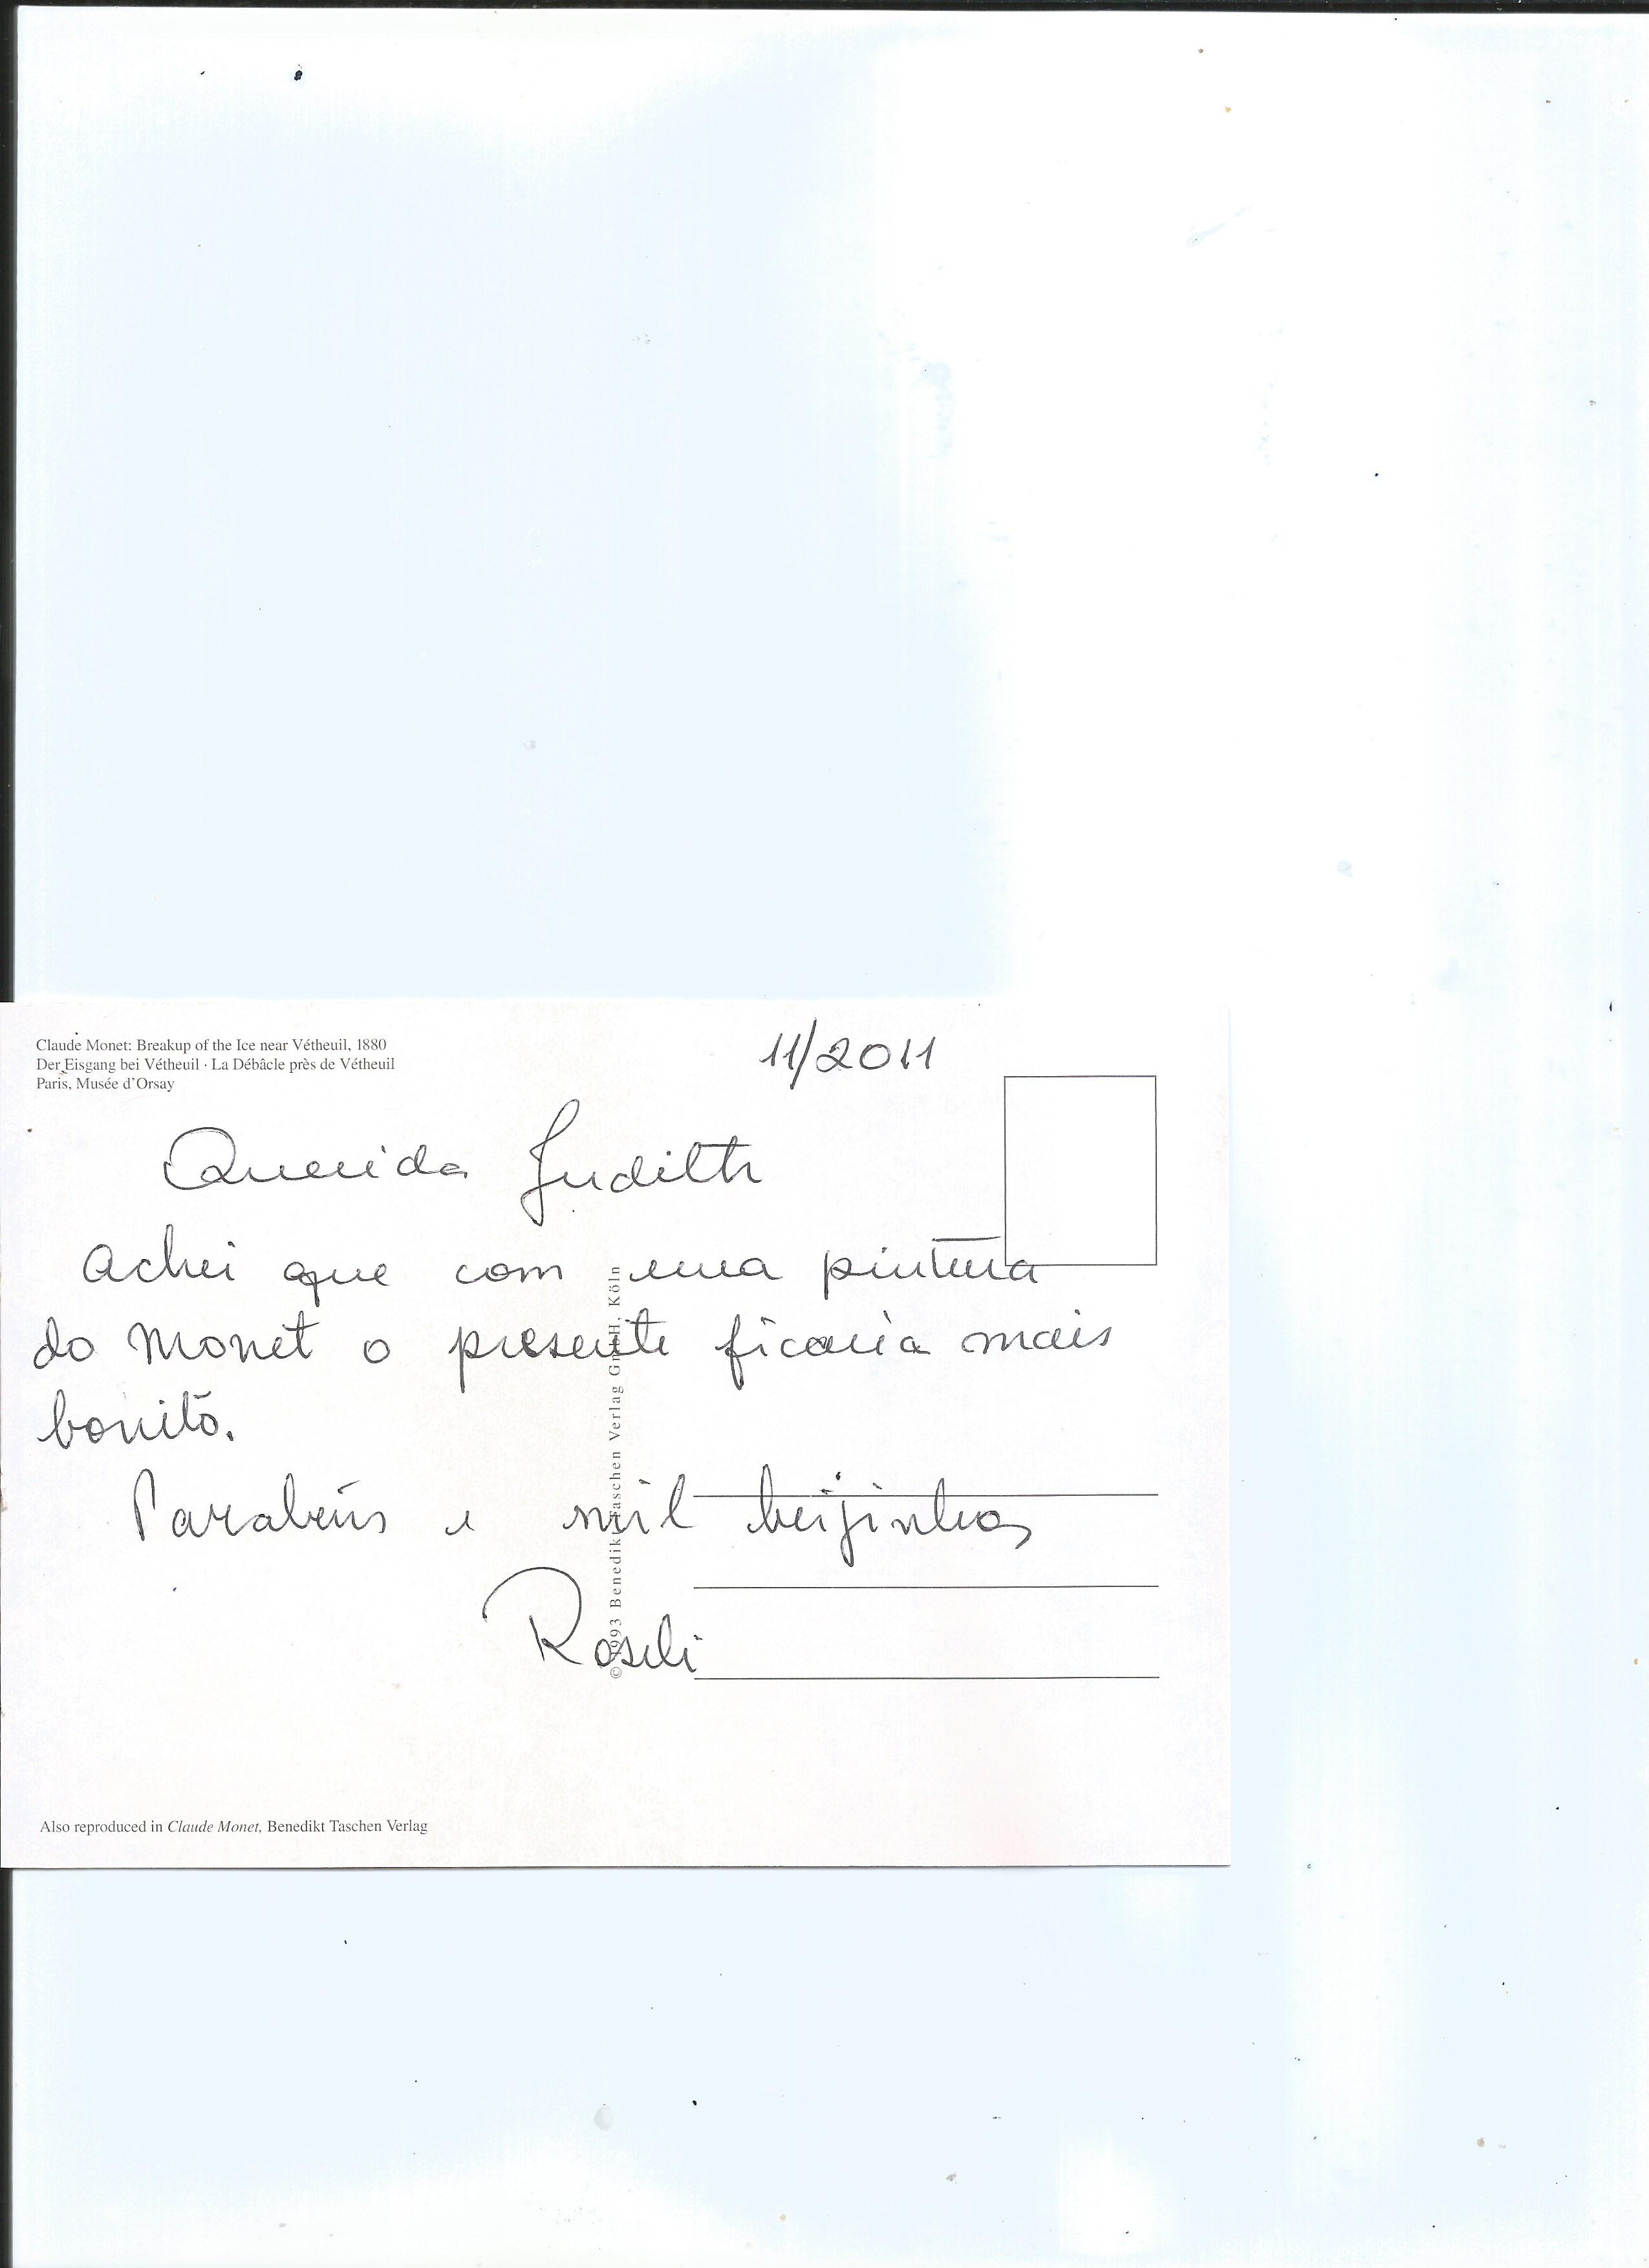 Claude Monet: Breakup of the Ice near Vétheuil, 1880
Der Eisgang bei Vétheuil · La Débâcle près de Vétheuil
Paris, Musée d'Orsay
11/2011
Querida Judith
Achei que com uma pintura
do Monet o presente ficaria mais
bonito.
Parabéns e mil beijinhos
Roseli
© 1993 Benedikt Taschen Verlag GmbH, Köln
Also reproduced in Claude Monet, Benedikt Taschen Verlag